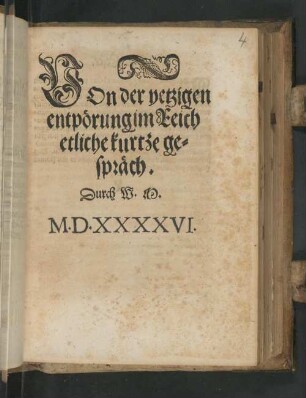 4
VOn der yetzigen
entpörung im Reich
etliche kurtze ge-
spräch.
Durch W. M.
M.D.XXXXVI.